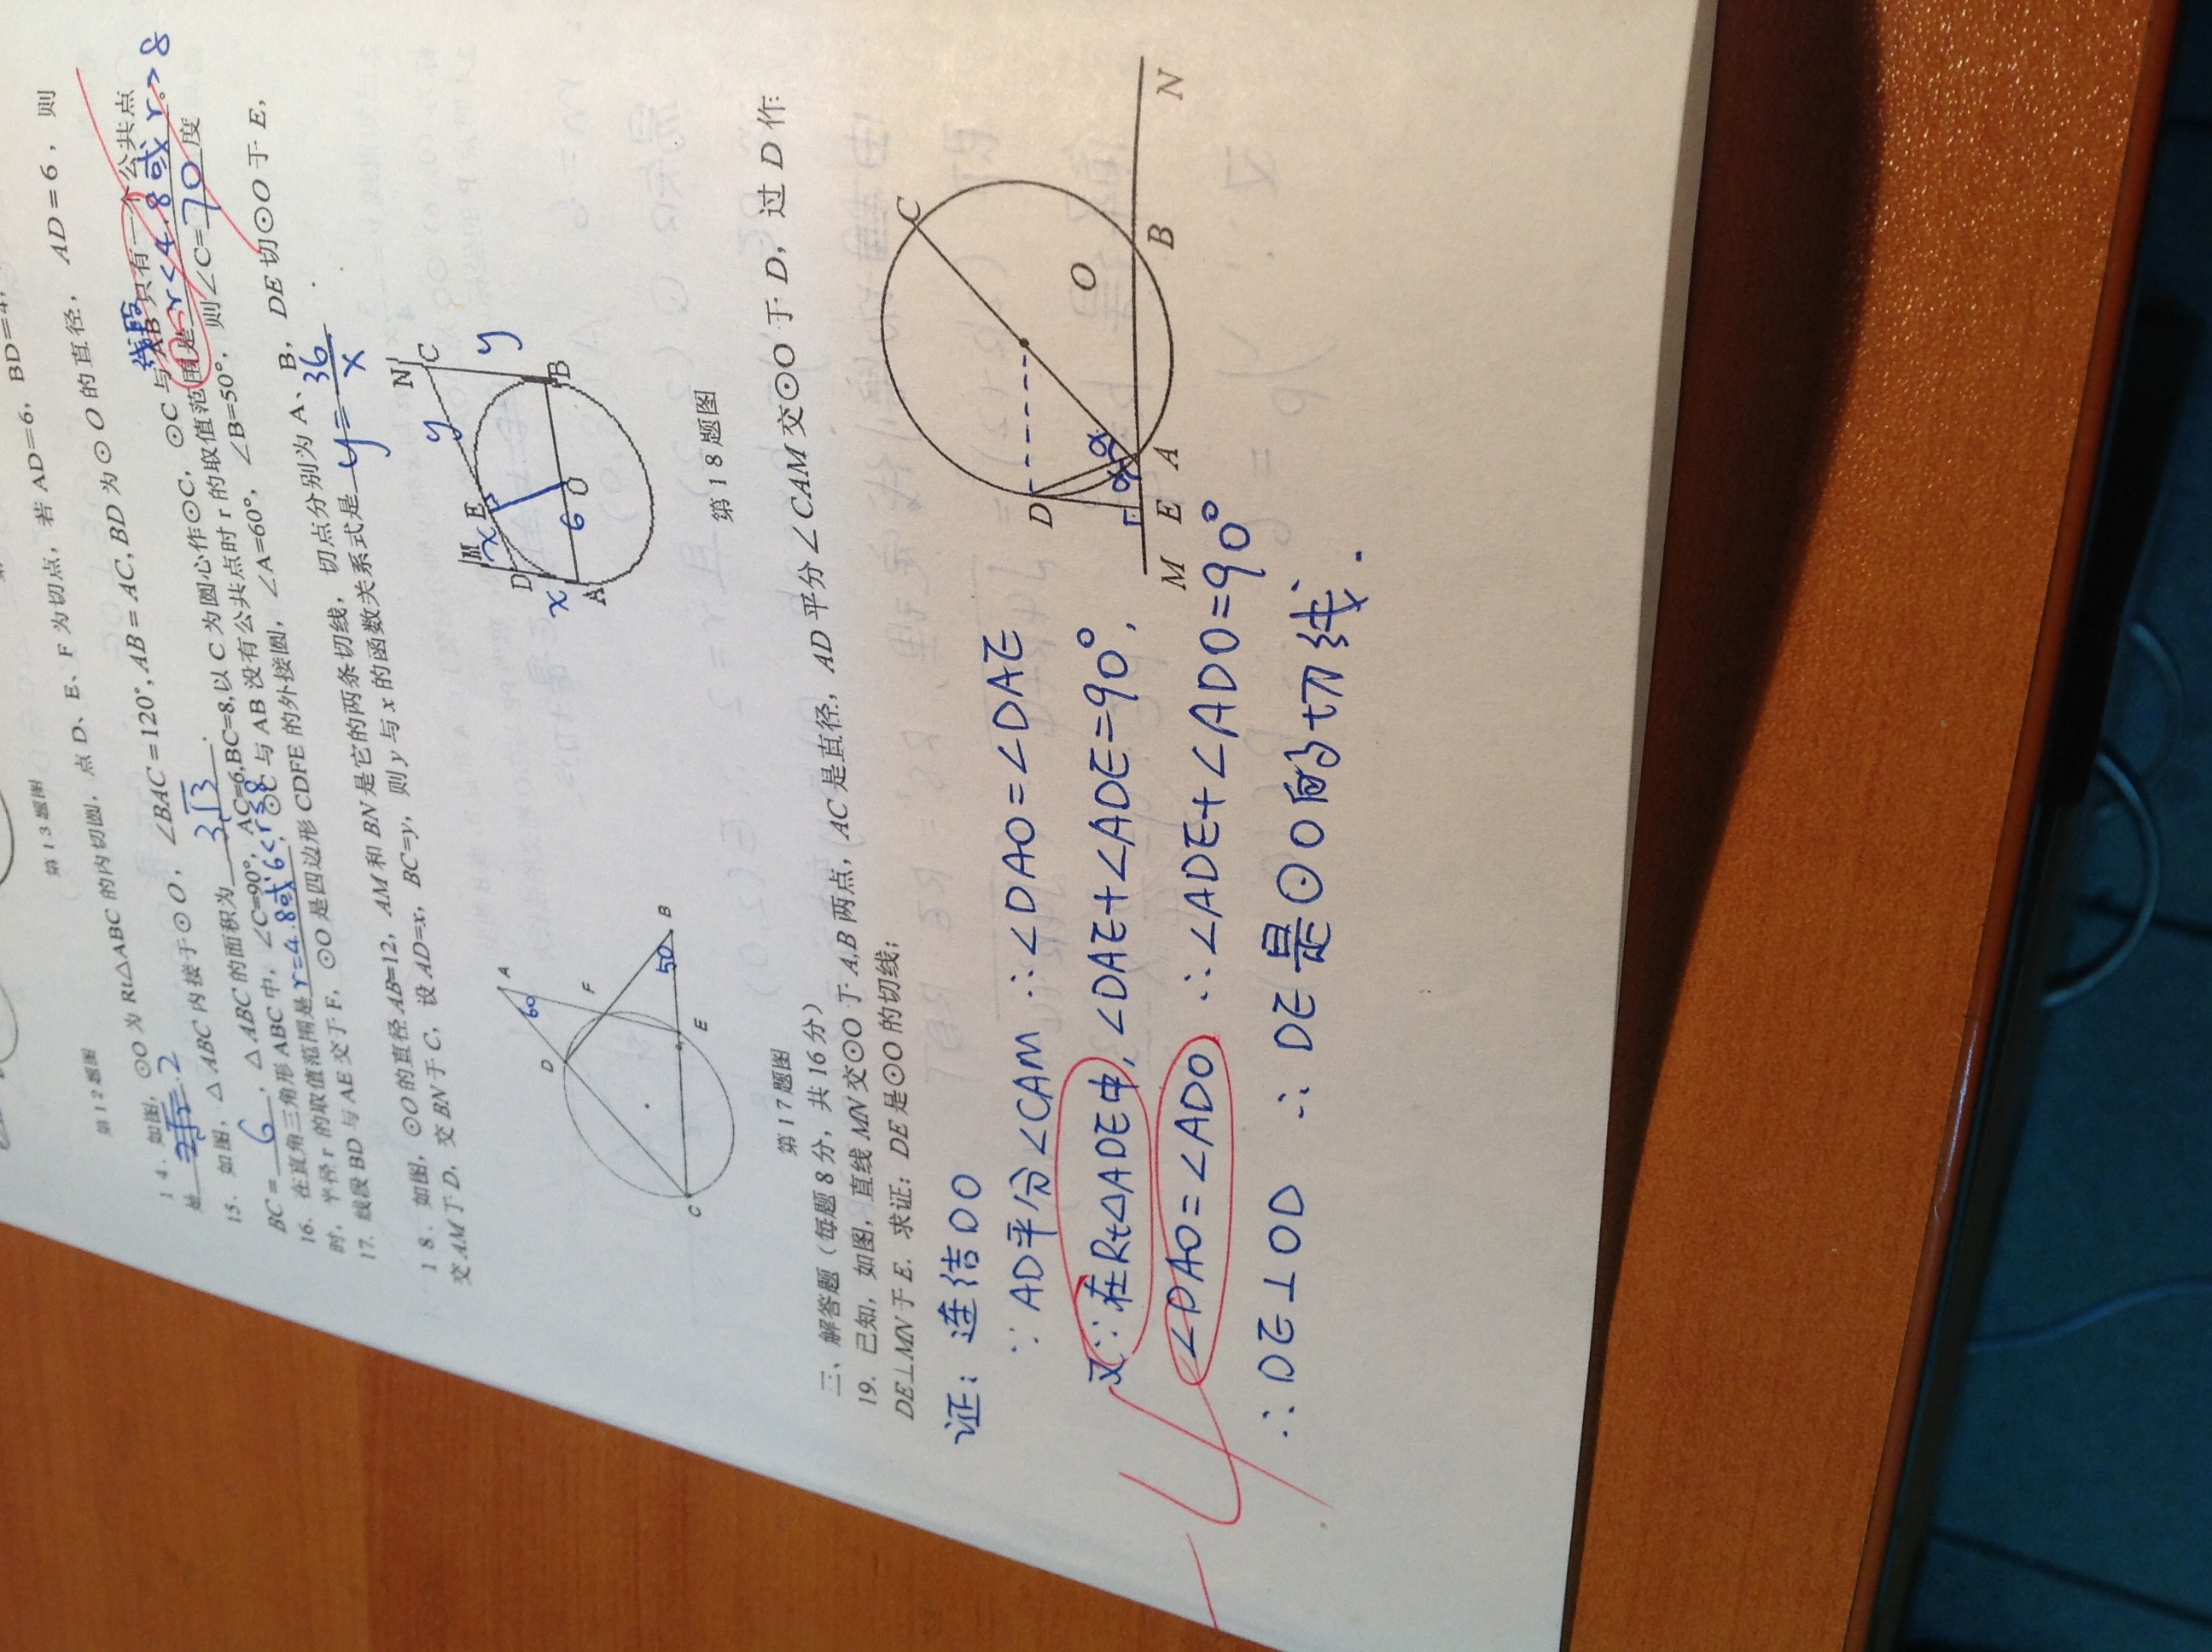 第13题图
第12题图
14.如图，⊙O 为 Rt△ABC 的内切圆，点 D、E、F 为切点，若 AD=6，BD=4，
是 2
15．如图，△ABC 内接于⊙O，∠BAC=120°,AB=AC,BD 为⊙O 的直径，AD=6，则
BC=6，△ABC 的面积为 3√3．
16．在直角三角形 ABC 中，∠C=90°，AC=6,BC=8,以 C 为圆心作⊙C，⊙C 与线段AB 只有一个公共点
时，半径 r 的取值范围是 r=4.8或6<r≤8，⊙C 与 AB 没有公共点时 r 的取值范围是 0<r<4.8或r>8。
17．线段 BD 与 AE 交于 F，⊙O 是四边形 CDFE 的外接圆，∠A=60°，∠B=50°，则∠C=70度
18．如图，⊙O 的直径 AB=12，AM 和 BN 是它的两条切线，切点分别为 A、B，DE 切⊙O 于 E，
交 AM 于 D，交 BN 于 C，设 AD=x，BC=y，则 y 与 x 的函数关系式是 y=36/x
A
60
D
F
50
B
C
E
第17题图
N
C
y
M
x
E
D
y
x
6
O
B
A
第18题图
三、解答题（每题 8 分，共 16 分）
19．已知，如图，直线 MN 交⊙O 于 A,B 两点，AC 是直径，AD 平分∠CAM 交⊙O 于 D，过 D 作
DE⊥MN 于 E．求证：DE 是⊙O 的切线；
证：连结DO
∵AD平分∠CAM ∴∠DAO=∠DAE
又∵在Rt△ADE中,∠DAE+∠ADE=90°,
∠DAO=∠ADO ∴∠ADE+∠ADO=90°
∴DE⊥OD ∴DE是⊙O的切线.
-4
C
D
O
α α
M E A B N